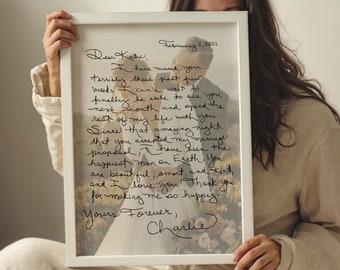 February 2, 2011
Dear Katie,
I have missed you
terribly these past few
weeks. I can't wait to
finally be able to see you
next month and spend the
rest of my life with you.
Since that amazing night
that you accepted my marriage
proposal, I have been the
happiest man on Earth. You
are beautiful, smart, and kind,
and I love you. Thank you
for making me so happy.
Yours Forever,
Charlie